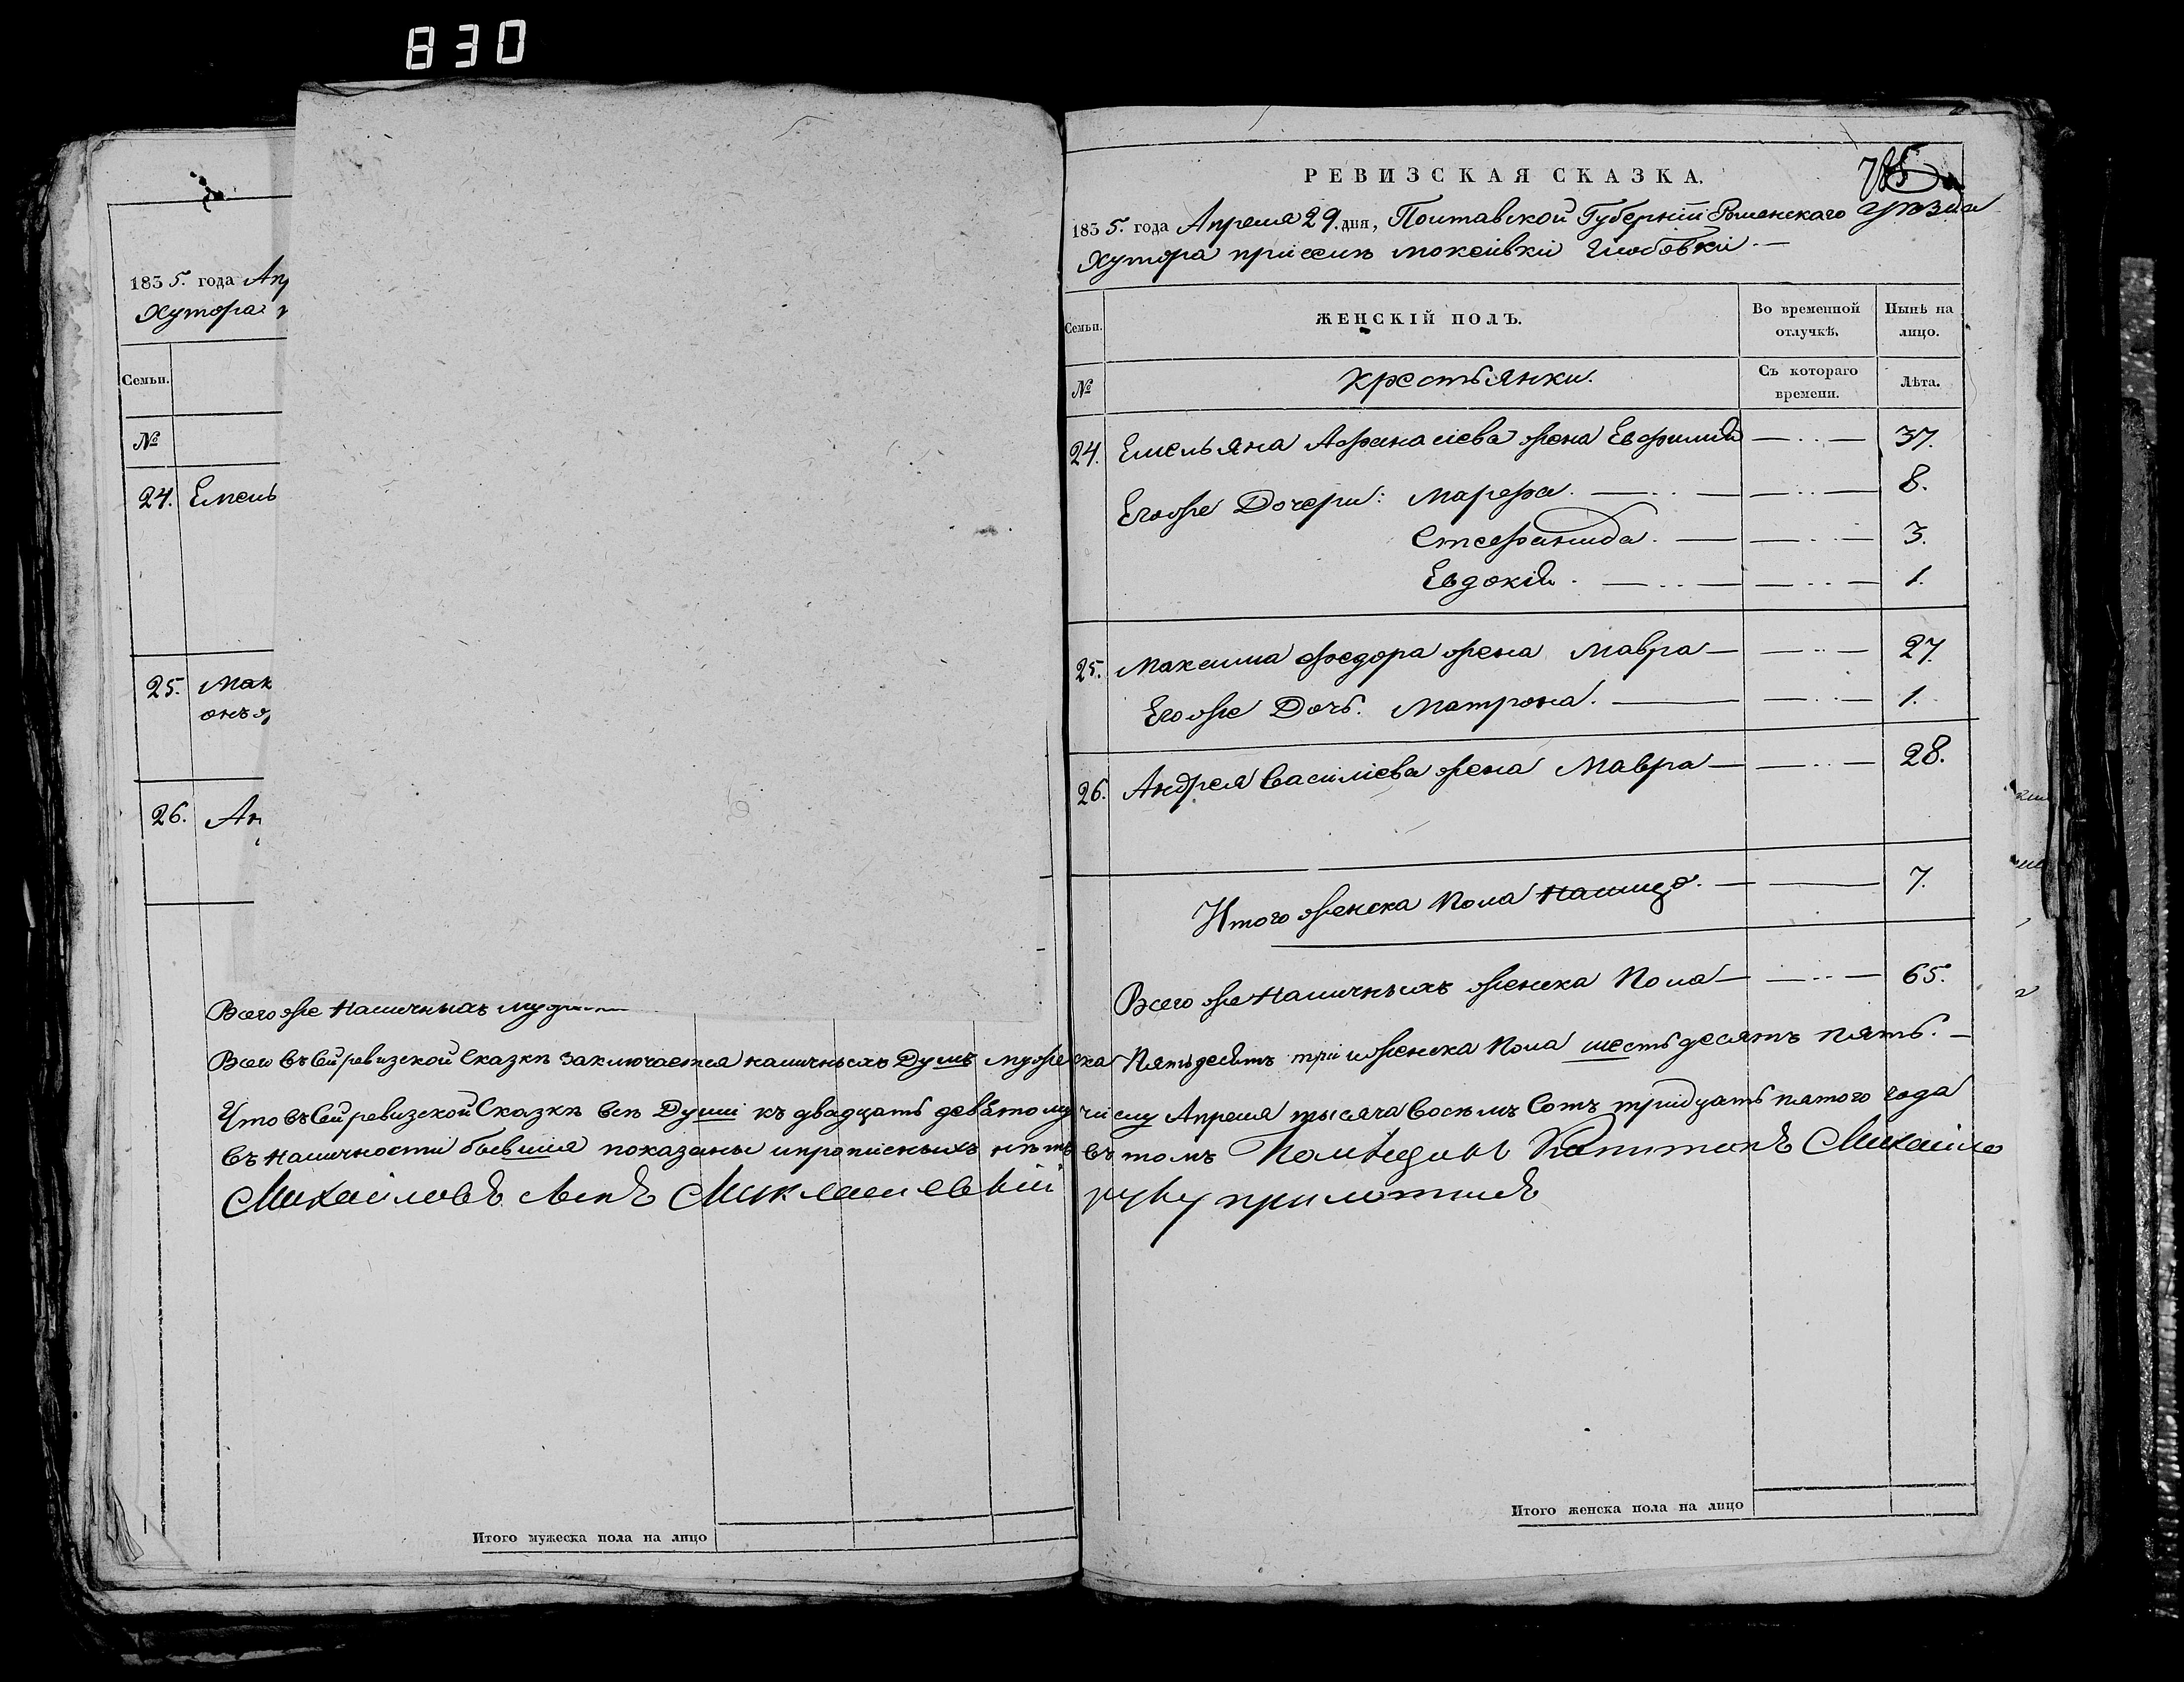 830
1835. года Ап
Хутора
Семьи.
№
24. Емель
25. Мак
онъ
26. Ан
Всего же наличныхъ муж
РЕВИЗСКАЯ СКАЗКА.
785
1835. года Апреля 29. дня, Полтавской Губерніи Роменскаго уѣзда
Хутора при селѣ
Семьи. ЖЕНСКІЙ ПОЛЪ. Во временной отлучкѣ. Нынѣ на лицо.
№ Крестьянки. Съ котораго времени. Лѣта.
24. Емельяна Афанасіева жена Евфимія — . . — 37.
Егоже Дочери: Марфа. — . . — — . . — 8.
Стефанида. — — . . — 3.
Евдокія. — . . — — . . — 1.
25. Максима Федора жена Мавра — — . . — 27.
Егоже Дочь. Матрона. — — . . — 1.
26. Андрея Василіева жена Мавра — — . . — 28.
Итого женска пола налицо. — — 7.
Всего же наличныхъ женска пола — — . . — 65.
Всего въ сей ревизской Сказкѣ заключается наличныхъ Душъ мужеска пятьдесятъ три и женска пола шестьдесятъ пять. —
Что въ сей ревизской Сказкѣ всѣ Души къ двадцать девятому числу Апреля тысяча восемъ сотъ тридцать пятого года
въ наличности бывшия показаны и прописныхъ нѣтъ въ томъ Помѣщикъ Капитанъ Михайло
Михайловъ сынъ Миклашевскій руку приложилъ
Итого мужеска пола на лицо
Итого женска пола на лицо